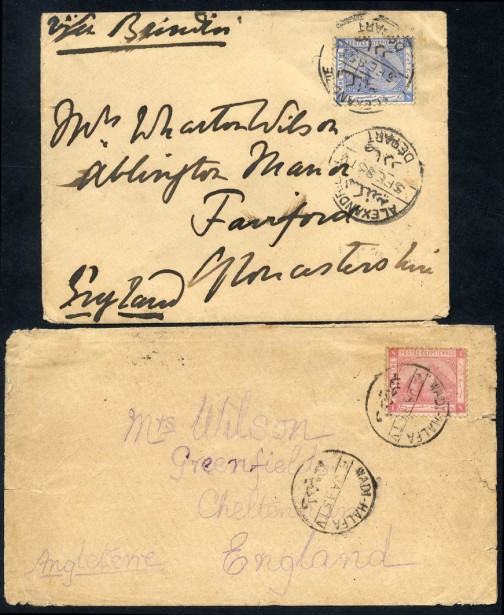 via Brindisi
Mrs Wharton Wilson
Ablington Manor
Fairford
Gloucestershire
England
ALEXANDRIE
DEPART
5 FE 86
ALEXANDRIE
DEPART
5 FE 86 T V
POSTES EGYPTIENNES
WADI-HALFA
Mrs Wilson
Greenfield
Cheltenham
England
Angleterre
WADI-HALFA